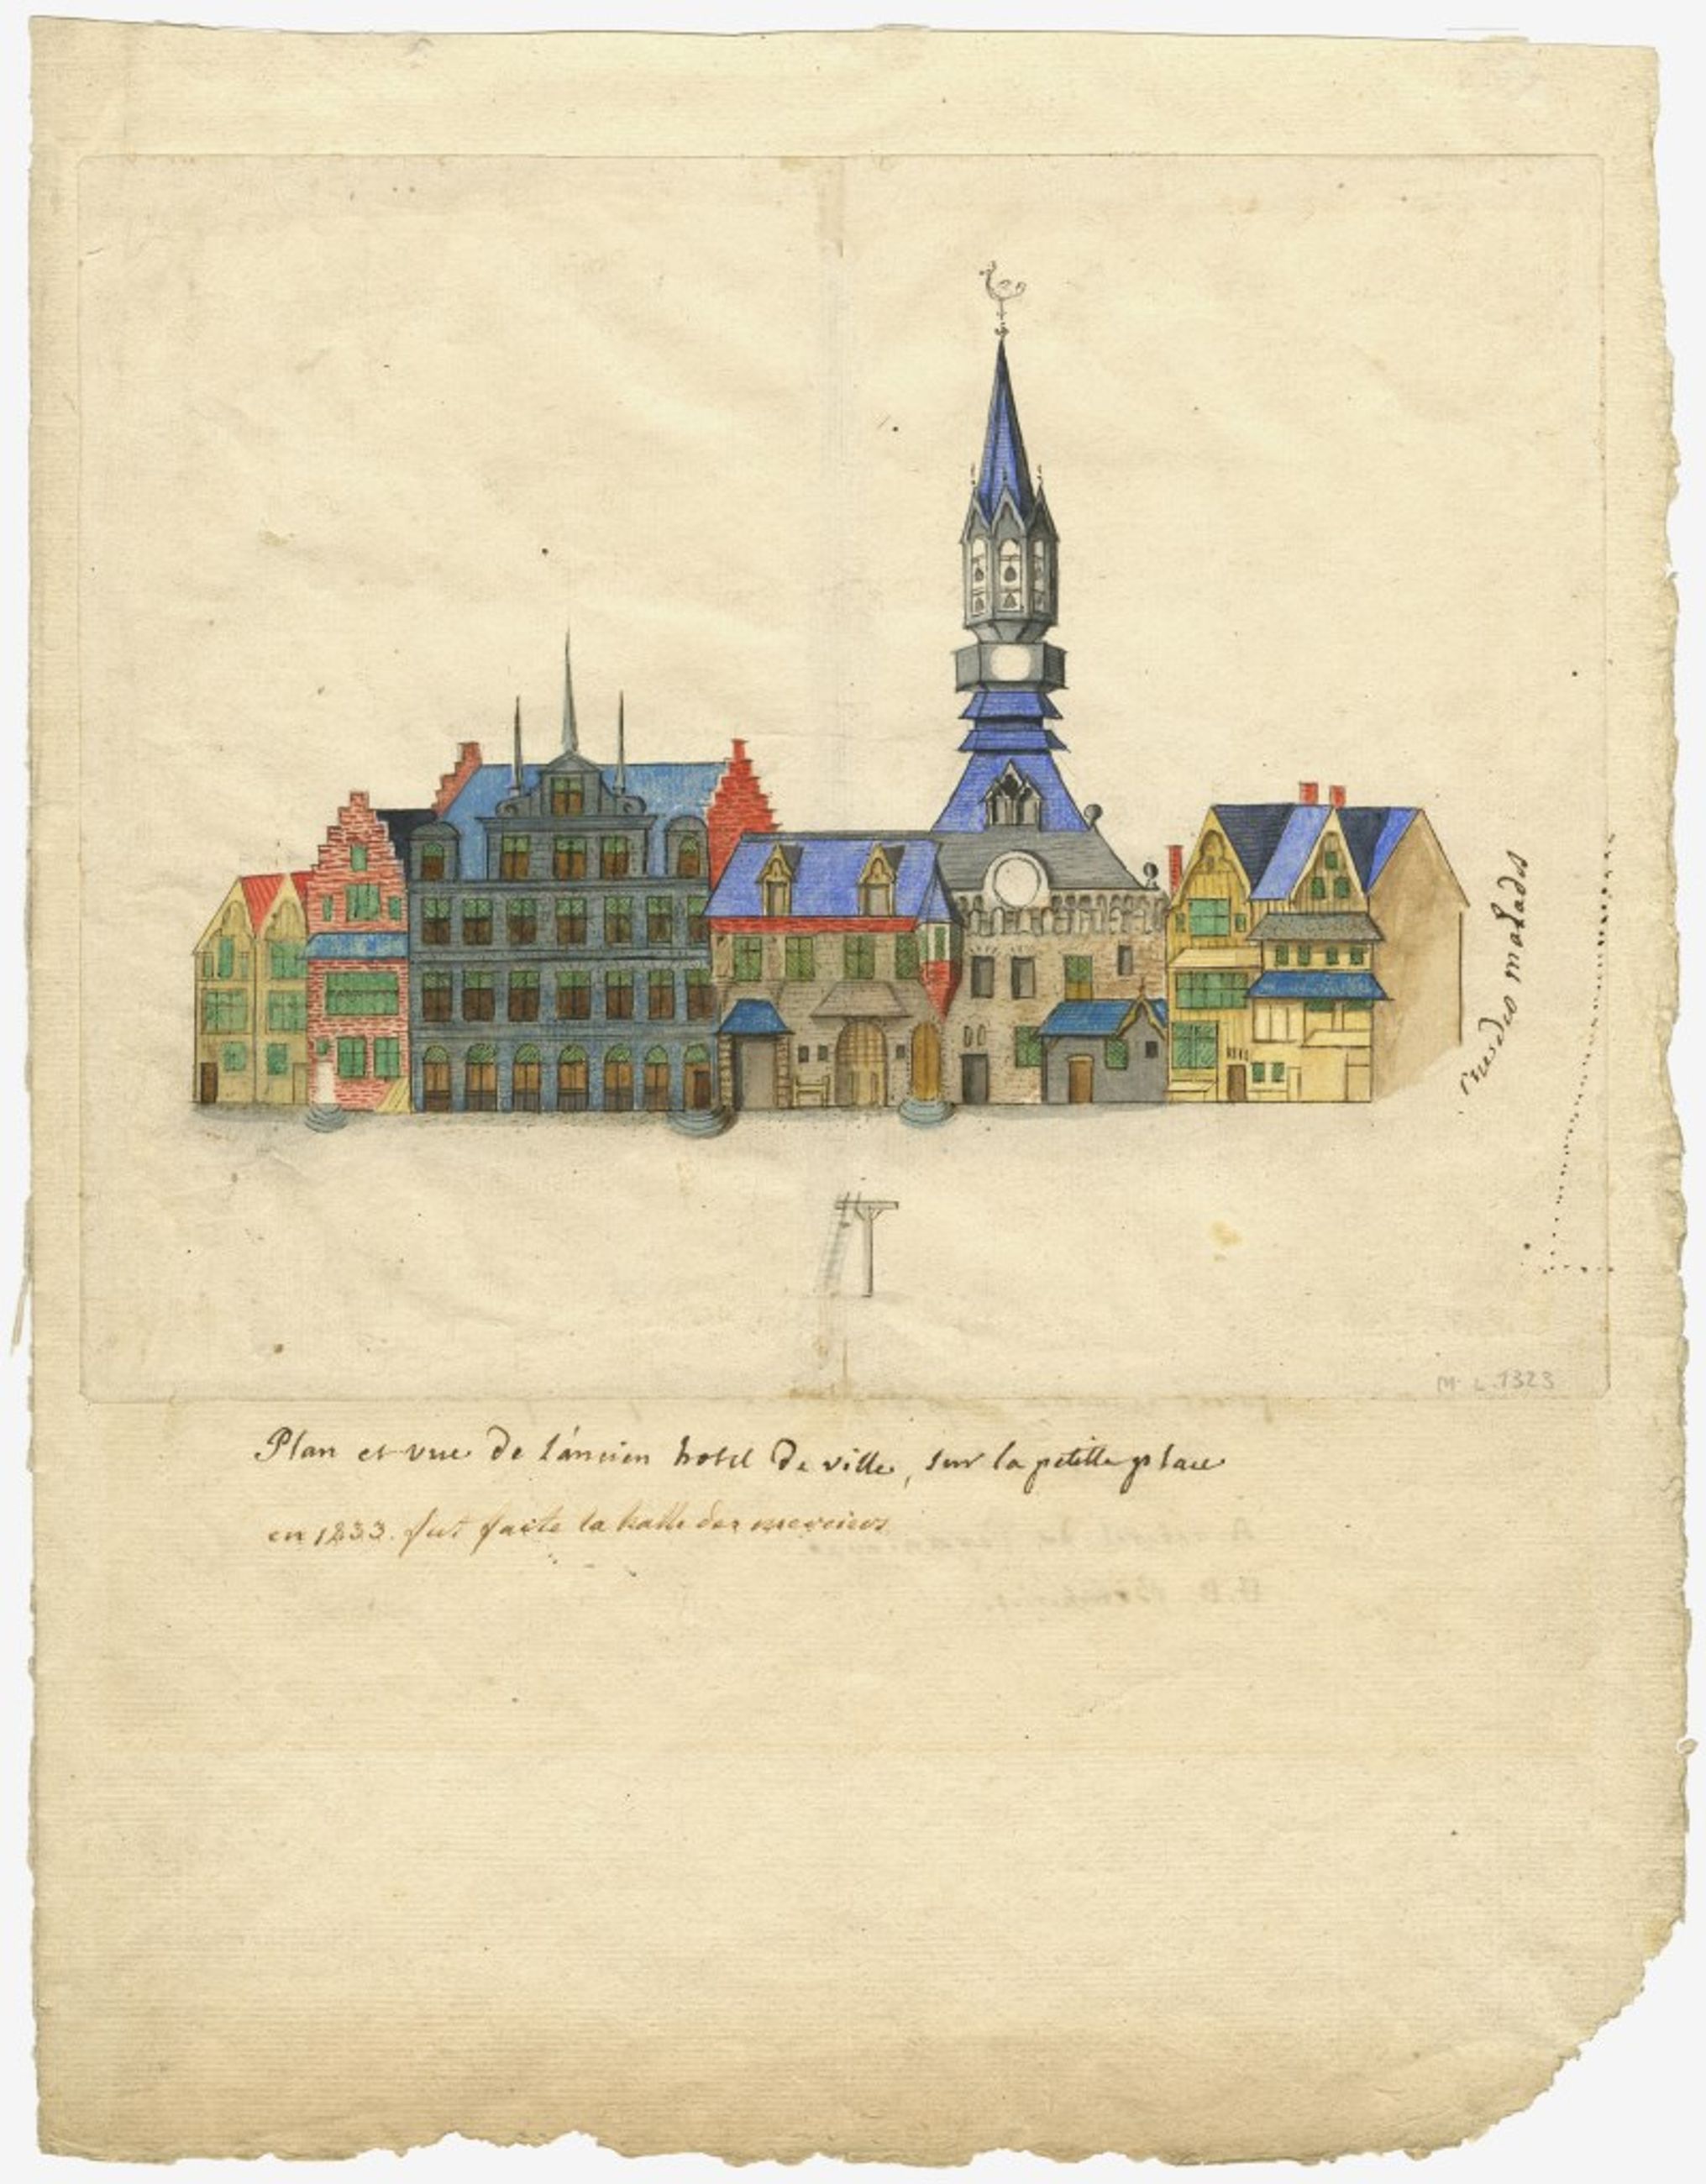 rue des malades
M. L. 1323
Plan et vue de l'ancien hotel de ville, sur la petitte place
en 1233. fut faite la halle des merciers